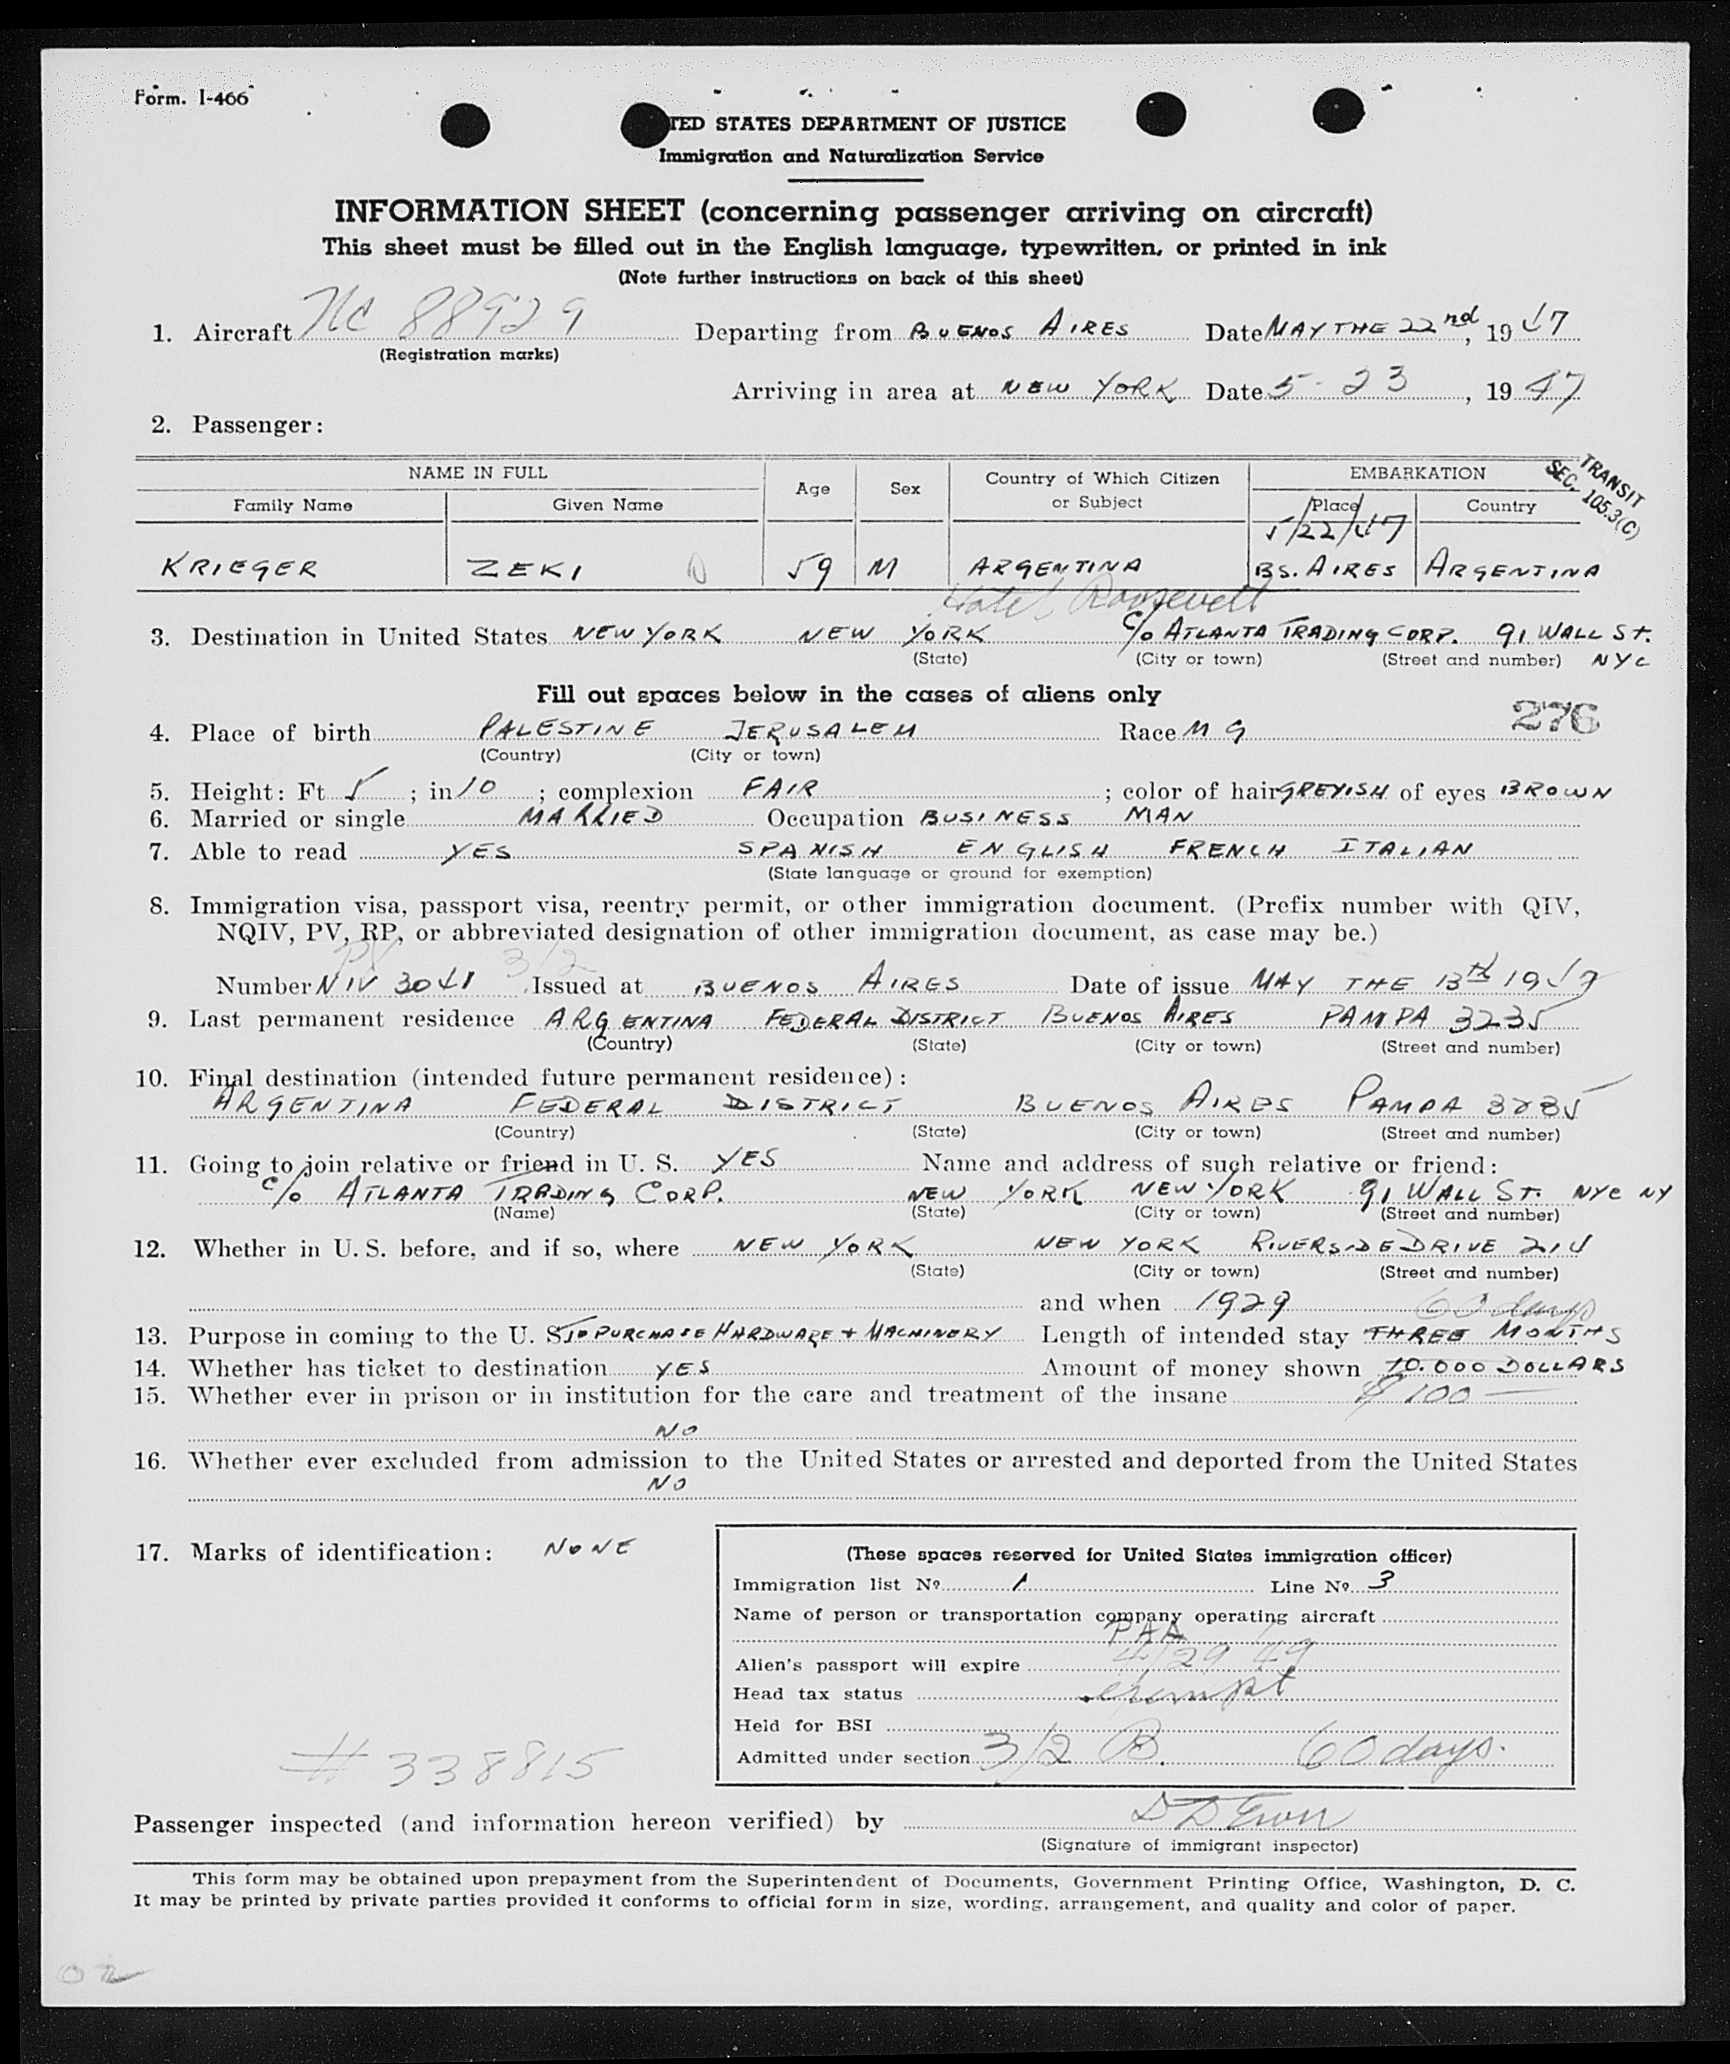 Form. I-466
TED STATES DEPARTMENT OF JUSTICE
Immigration and Naturalization Service
INFORMATION SHEET (concerning passenger arriving on aircraft)
This sheet must be filled out in the English language, typewritten, or printed in ink
(Note further instructions on back of this sheet)
1. Aircraft NC 88929 Departing from BUENOS AIRES Date MAY THE 22nd, 1947
(Registration marks)
Arriving in area at NEW YORK Date 5-23, 1947
2. Passenger:
NAME IN FULL Age Sex Country of Which Citizen or Subject EMBARKATION TRANSIT SEC. 105.3(C)
Family Name Given Name Place Country
5/22/47
KRIEGER ZEKI 59 M ARGENTINA BS. AIRES ARGENTINA
Hotel Roosevelt
3. Destination in United States NEW YORK NEW YORK c/o ATLANTA TRADING CORP. 91 WALL ST.
(State) (City or town) (Street and number) NYC
Fill out spaces below in the cases of aliens only
276
4. Place of birth PALESTINE JERUSALEM Race M G
(Country) (City or town)
5. Height: Ft 5; in 10; complexion FAIR; color of hair GREYISH of eyes BROWN
6. Married or single MARRIED Occupation BUSINESS MAN
7. Able to read YES SPANISH ENGLISH FRENCH ITALIAN
(State language or ground for exemption)
8. Immigration visa, passport visa, reentry permit, or other immigration document. (Prefix number with QIV,
NQIV, PV, RP, or abbreviated designation of other immigration document, as case may be.)
PV 3/2
Number NIV 3041 Issued at BUENOS AIRES Date of issue MAY THE 13th 1947
9. Last permanent residence ARGENTINA FEDERAL DISTRICT BUENOS AIRES PAMPA 3235
(Country) (State) (City or town) (Street and number)
10. Final destination (intended future permanent residence):
ARGENTINA FEDERAL DISTRICT BUENOS AIRES PAMPA 3235
(Country) (State) (City or town) (Street and number)
11. Going to join relative or friend in U. S. YES Name and address of such relative or friend:
c/o ATLANTA TRADING CORP. NEW YORK NEW YORK 91 WALL ST. NYC NY
(Name) (State) (City or town) (Street and number)
12. Whether in U. S. before, and if so, where NEW YORK NEW YORK RIVERSIDE DRIVE 214
(State) (City or town) (Street and number)
and when 1929 60 days
13. Purpose in coming to the U. S. TO PURCHASE HARDWARE + MACHINERY Length of intended stay THREE MONTHS
14. Whether has ticket to destination YES Amount of money shown 10.000 DOLLARS
15. Whether ever in prison or in institution for the care and treatment of the insane $ 100 —
NO
16. Whether ever excluded from admission to the United States or arrested and deported from the United States
NO
17. Marks of identification: NONE
(These spaces reserved for United States immigration officer)
Immigration list No 1 Line No 3
Name of person or transportation company operating aircraft
PAA
Alien's passport will expire 4/29/49
Head tax status exempt
Held for BSI
Admitted under section 3/2 B. 60 days.
# 338815
Passenger inspected (and information hereon verified) by
(Signature of immigrant inspector)
This form may be obtained upon prepayment from the Superintendent of Documents, Government Printing Office, Washington, D. C.
It may be printed by private parties provided it conforms to official form in size, wording, arrangement, and quality and color of paper.
02